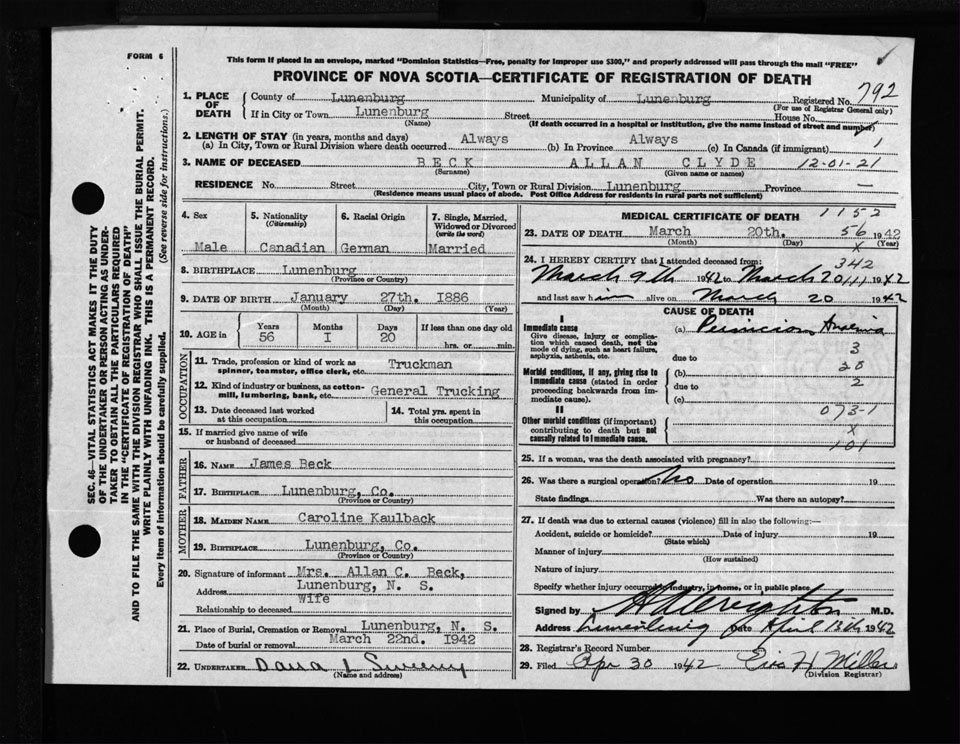 FORM 6
This form if placed in an envelope, marked "Dominion Statistics—Free, penalty for improper use $300," and properly addressed will pass through the mail "FREE"
PROVINCE OF NOVA SCOTIA—CERTIFICATE OF REGISTRATION OF DEATH
792
SEC. 46—VITAL STATISTICS ACT MAKES IT THE DUTY
OF THE UNDERTAKER OR PERSON ACTING AS UNDER-
TAKER TO OBTAIN ALL THE PARTICULARS REQUIRED
IN THE "CERTIFICATE OF REGISTRATION OF DEATH"
AND TO FILE THE SAME WITH THE DIVISION REGISTRAR WHO SHALL ISSUE THE BURIAL PERMIT.
WRITE PLAINLY WITH UNFADING INK. THIS IS A PERMANENT RECORD.
Every item of information should be carefully supplied. (See reverse side for instructions.)
1. PLACE OF DEATH County of Lunenburg Municipality of Lunenburg Registered No.
(For use of Registrar General only)
If in City or Town Lunenburg Street House No.
(Name) (If death occurred in a hospital or institution, give the name instead of street and number)
2. LENGTH OF STAY (in years, months and days)
(a) In City, Town or Rural Division where death occurred Always (b) In Province Always (c) In Canada (if immigrant) 1
3. NAME OF DECEASED BECK ALLAN CLYDE 12-01-21
(Surname) (Given name or names)
RESIDENCE No. Street City, Town or Rural Division Lunenburg Province —
(Residence means usual place of abode. Post Office Address for residents in rural parts not sufficient)
4. Sex 5. Nationality (Citizenship) 6. Racial Origin 7. Single, Married, Widowed or Divorced (write the word)
Male Canadian German Married
8. BIRTHPLACE Lunenburg
(Province or Country)
9. DATE OF BIRTH January 27th. 1886
(Month) (Day) (Year)
10. AGE in Years Months Days If less than one day old
56 I 20 hrs. or min.
OCCUPATION
11. Trade, profession or kind of work as spinner, teamster, office clerk, etc. Truckman
12. Kind of industry or business, as cotton-mill, lumbering, bank, etc. General Trucking
13. Date deceased last worked at this occupation 14. Total yrs. spent in this occupation
15. If married give name of wife or husband of deceased
FATHER
16. NAME James Beck
17. BIRTHPLACE Lunenburg, Co.
(Province or Country)
MOTHER
18. MAIDEN NAME Caroline Kaulback
19. BIRTHPLACE Lunenburg, Co.
(Province or Country)
20. Signature of informant Mrs. Allan C. Beck,
Address Lunenburg, N. S.
Relationship to deceased Wife
21. Place of Burial, Cremation or Removal Lunenburg, N. S.
Date of burial or removal March 22nd. 1942
22. UNDERTAKER Dana L Sweeny
(Name and address)
MEDICAL CERTIFICATE OF DEATH
1152
23. DATE OF DEATH March 20th. 56 1942
(Month) (Day) x (Year)
342
24. I HEREBY CERTIFY that I attended deceased from:
March 9th 1942 to March 20 1942
and last saw him alive on March 20 1942
CAUSE OF DEATH
I
Immediate cause
Give disease, injury or complication which caused death, not the mode of dying, such as heart failure, asphyxia, asthenia, etc.
(a) Pernicious Anemia
3
due to
20
Morbid conditions, if any, giving rise to immediate cause (stated in order proceeding backwards from immediate cause).
(b)
due to 2
(c)
II
Other morbid conditions (if important) contributing to death but not causally related to immediate cause.
073-1
x
101
25. If a woman, was the death associated with pregnancy?
26. Was there a surgical operation? No Date of operation 19
State findings Was there an autopsy?
27. If death was due to external causes (violence) fill in also the following:—
Accident, suicide or homicide? Date of injury 19
(State which)
Manner of injury
(How sustained)
Nature of injury
Specify whether injury occurred in industry, in home, or in public place
Signed by Creighton M.D.
Address Lunenburg Date April 13th 1942
28. Registrar's Record Number
29. Filed Apr 30 1942 H Miller
(Division Registrar)